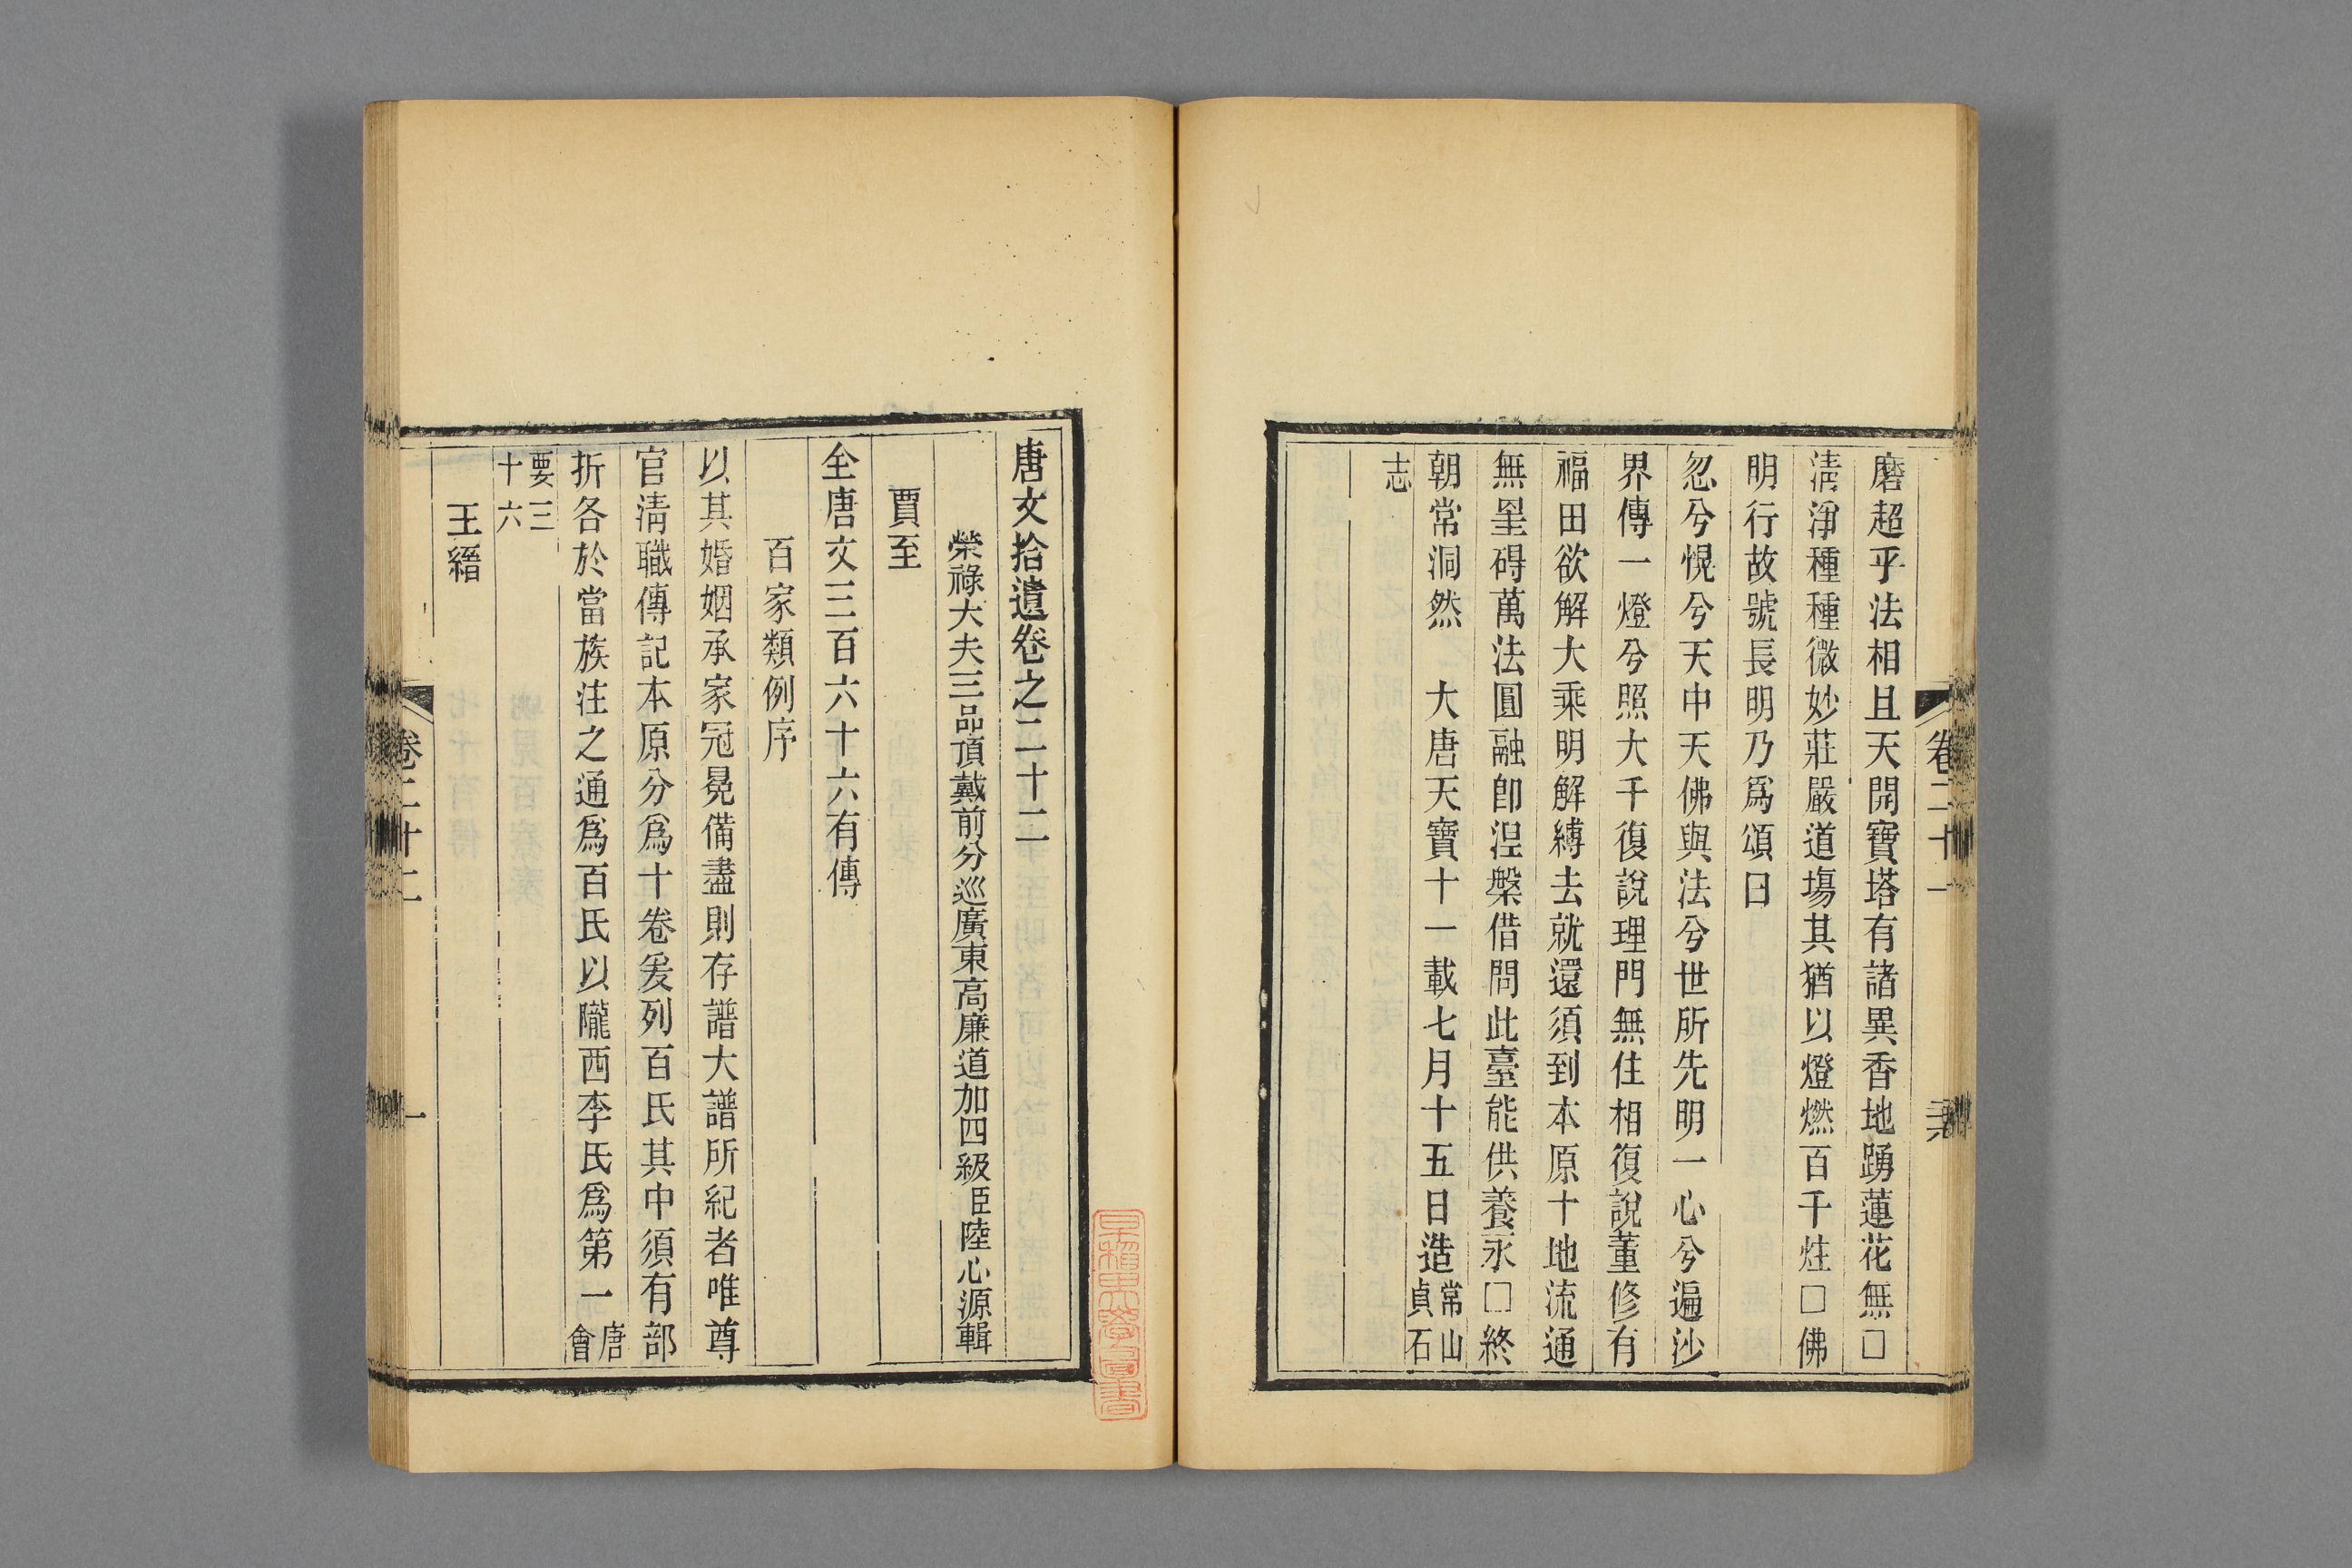 磨超乎法相且天開寶塔有諸異香地踴蓮花無□
淸淨種種微妙莊嚴道塲其猶以燈燃百千炷□佛
明行故號長明乃爲頌曰
忽兮怳兮天中天佛與法兮世所先明一心兮遍沙
界傳一燈兮照大千復說理門無住相復說董修有
福田欲解大乘明解縛去就還須到本原十地流通
無罣碍萬法圓融卽湼槃借問此臺能供養永□終
朝常洞然　大唐天寶十一載七月十五日造常山
貞石
志
卷二十一
唐文拾遺卷之二十二
榮祿大夫三品頂戴前分巡廣東高廉道加四級臣陸心源輯
賈至
全唐文三百六十六有傳
百家類例序
以其婚姻承家冠冕備盡則存譜大譜所紀者唯尊
官淸職傳記本原分爲十卷爰列百氏其中須有部
折各於當族注之通爲百氏以隴西李氏爲第一唐
會
要三
十六
王縉
卷二十二
一